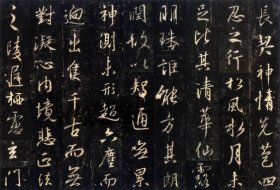 長契神情先苞四
忍之行松風水月未
足比其清華仙露
明珠詎能方其朗
潤故以智通無累
神測未形超六塵而
迥出隻千古而無
對凝心内境悲正法
之陵遲栖慮玄門